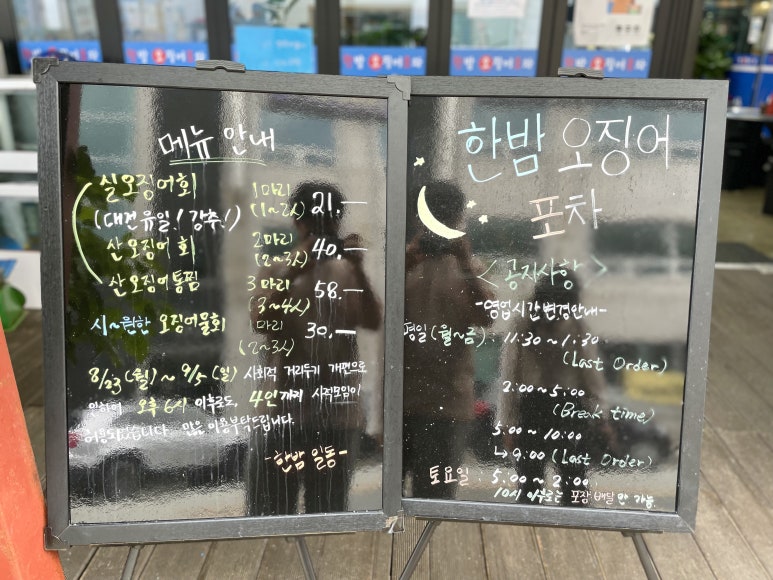 메뉴 안내
실오징어회 1마리 (1~2人) 21.—
(대전유일! 강추!)
산오징어회 2마리 (2~3人) 40.—
산오징어통찜 3마리 (3~4人) 58.—
시~원한 오징어물회 1마리 (2~3人) 30.—
8/23 (월) ~ 9/5 (일) 사회적 거리두기 개편으로
오후 6시 이후로도, 4인까지 사적모임이
허용되었습니다. 많은 이용부탁드립니다.
-한밤 일동-
한밤 오징어
포차
<공지사항>
-영업시간변경안내-
평일 (월~금) : 11:30 ~ 1:30
(Last Order)
2:00 ~ 5:00
(Break time)
5:00 ~ 10:00
↳ 9:00 (Last Order)
토요일 : 5:00 ~ 2:00
10시 이후로는 포장·배달만 가능.